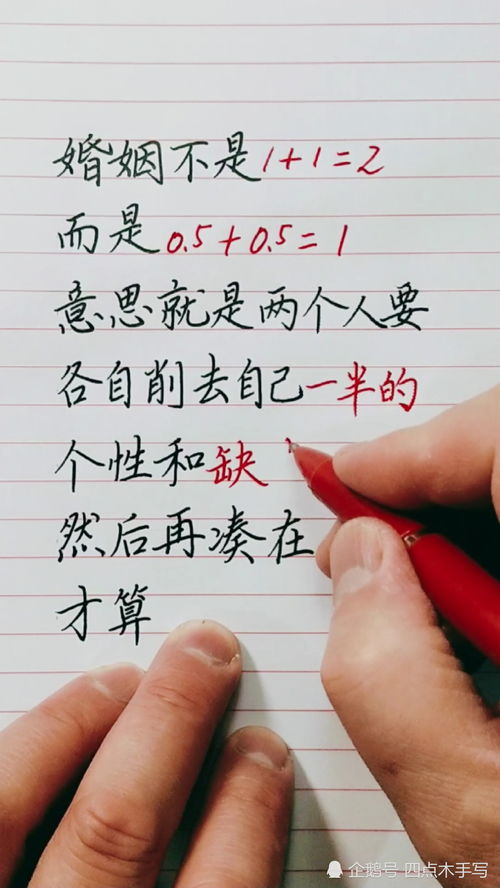 婚姻不是1+1=2
而是0.5+0.5=1
意思就是两个人要
各自削去自己一半的
个性和缺
然后再凑在
才算
企鹅号 四点木手写